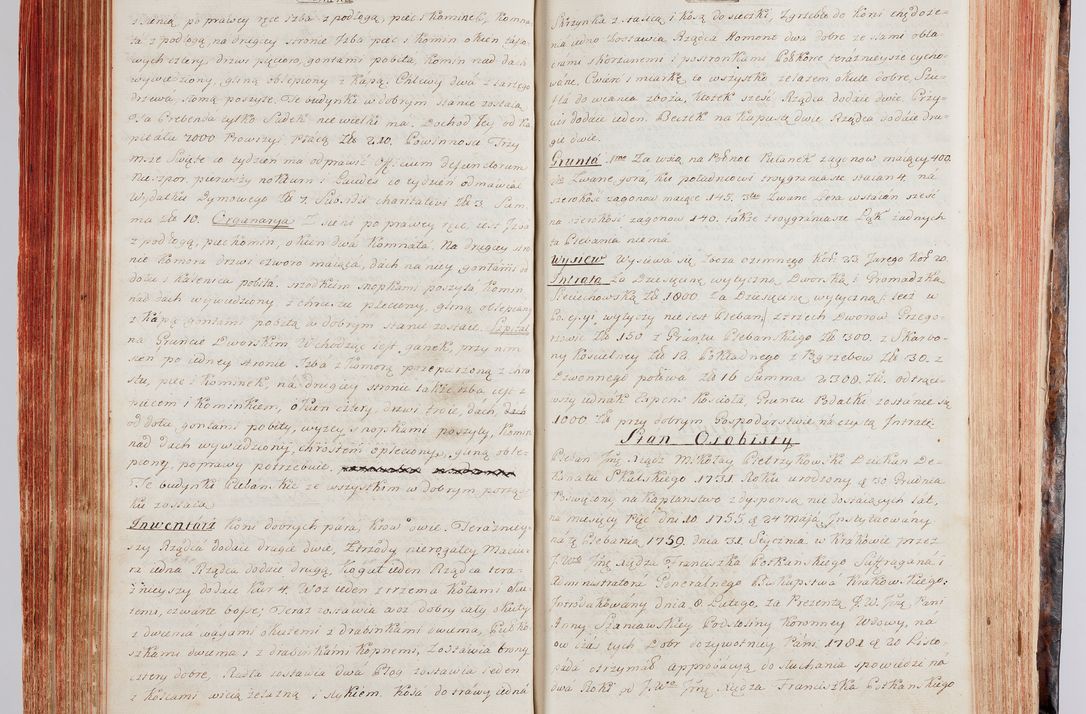 z Sienią, po prawey ręce Izba z podłogą, piec i Kominek, Komna-
ta z podłogą, na drugiey stronie Izba piec i Komin okien
wych cztery, drzwi pięcioro, gontami pobita, Komin nad dach
wywiedziony, gliną oblepiony z Kapą. Chlewy dwa z tartego
drzewa, słomą poszyte. Te budynki w dobrym stanie zostaią
Ta Plebania tylko Sadek niewielki ma. Dochod Jey od Ka-
pitału 7000 Prowizyi Płacą Zł 210. Powinnosc Trzy
msze Swięte co tydzień ma odprawić Officium defunctorum
Nieszpor, pierwszy nokturn i Laudes co tydzień odmawiać
Wydatki Dymowego Zł 7. Sub-idii charitativi Zł 3. Sum-
ma Zł 10. Organarya Z sieni po prawey ręce, iest Izba
z podłogą, piec komin, okien dwa Komnata. Na drugiey stro-
nie Komora drzwi czworo maiąca, dach na niey gontami od
dołu i Kalenica pobita, srzodkiem snopkami poszyta, Komin
nad dach wywiedziony z chrustu pleciony, gliną oblepiony
z Kapą gontami pobitą w dobrym stanie zostaie. Szpital
na Gruncie Dworskim Wchodząc iest ganek, przy nim
sień po iedney stronie Izba z Komorą przeparzoną z chro-
stu, piec i Kominek, na drugiey stronie takze izba, iest z
piecem i kominkiem, okien cztery, drzwi troie, dach, dach
od dołu gontami pobity, wyżey snopkami poszyty, Komin
nad dach wywiedziony, chrostem opleciony, gliną oble-
piony, poprawy potrzebuie.
Te budynki Plebanskie ze wszystkim w dobrym porząd-
ku zostaią
Inwentarz Koni dobrych para, Krow dwie. Terazniey-
szy Rządca dodaie drugie dwie, Z trzody nierogatey Macio-
ra iedna Rządca dodaie drugą, Kogut ieden Rządca tera-
znieyszy dodaie Kur 4. Woz ieden z trzema Kołami oku-
temi, czwarte bosse; Teraz zostawia woz dobry cały okuty
z dwiema wagami okutemi z drabinkami dwiema, Półko-
szkami dwiema i z drabinkami kopnemi, zostawia brony
cztery dobre, Radła zostawia dwa Pług zostawia ieden
z Kołami wicią żelazną i stykiem. Kosa do trawy iedna
Skrzynka z stalicą i Kosą do sieczki, Zgrzebło do Koni chędoze-
nia iedno zostawia Rządca Homont dwa dobre ze slami obla-
nemi skorzanemi i postronkami Półkonie teraznieysze cycho-
wane, Cwierć i miarkę to wszystko żelazem okute dobre, Szu-
fla do wiania zboża, Worek sześć Rządca dodaie dwie. Przy-
iąć dodaie ieden. Beczek na Kapustę dwie Rządca dodaie dru-
gie dwie.
Grunta 1mo Za wsią na Pułnoc Pulanek zagonow maiący 400.
2do Zwane gora, ku południowi troygraniaste staian 4. na
szerokość zagonow maiące 145. 3tio Zwane Lera wstaian sześć
na szerokość zagonow 140. także troygraniasze Łąk żadnych
ta Plebania niema
Wysiew Wysiewa się zboża ozimnego Kor: 23. Jarego Kor: 20.
Intrata Za Dziesięcinę wytyczną Dworską i Gromadzką
Sieciechowską Zł 1800. Za Dziesięcinę wytyczną, lecz w
Possessyi wytyczy nie iest Pleban, z trzech Dworow Przego-
rzowic Zł 150 z Gruntu Plebanskiego Zł 1300. z Skarbo-
ny Kościelney Zł 12. Pokładnego z Pogrzebow Zł 30. z
Dzwonnego połowa Zł 16 Summa 3308. Zł. odtrąci-
wszy iednak Expens Kościoła, Gruntu Podatki zostanie się
1000 Zł przy dobrym Gospodarstwie na czystą Intratę.
Stan Osobisty
Pleban Jmć Xiądz Mikołay Pietrzykowski Dziekan De-
kanatu Skalskiego 1731. Roku urodzony d 30 Grudnia
Poświęcony na Kapłaństwo z dyspensą nie dostaiących lat,
na miesięcy Pięć dni 10. 1755 d 24 Maja, Instytuowany
na tę Plebanią 1759. dnia 31. Stycznia w Krakowie przez
J. Wo Jmć Xiędza Franciszka Potkanskiego Suffragana i
Administratora Generalnego Biskupstwa Krakowskiego;
Introdukowany dnia 8. Lutego, za Prezentą J. W. Jmć Pani
Anny Szaniawskiey Podstoliny Koronney Wdowy, na
ow czas tych Dobr dożywotney Pani 1781 d 20 Listo-
pada otrzymał approbacyą do słuchania spowiedzi na
dwa Roki od J. Wo Jmć Xiędza Franciszka Potkanskiego